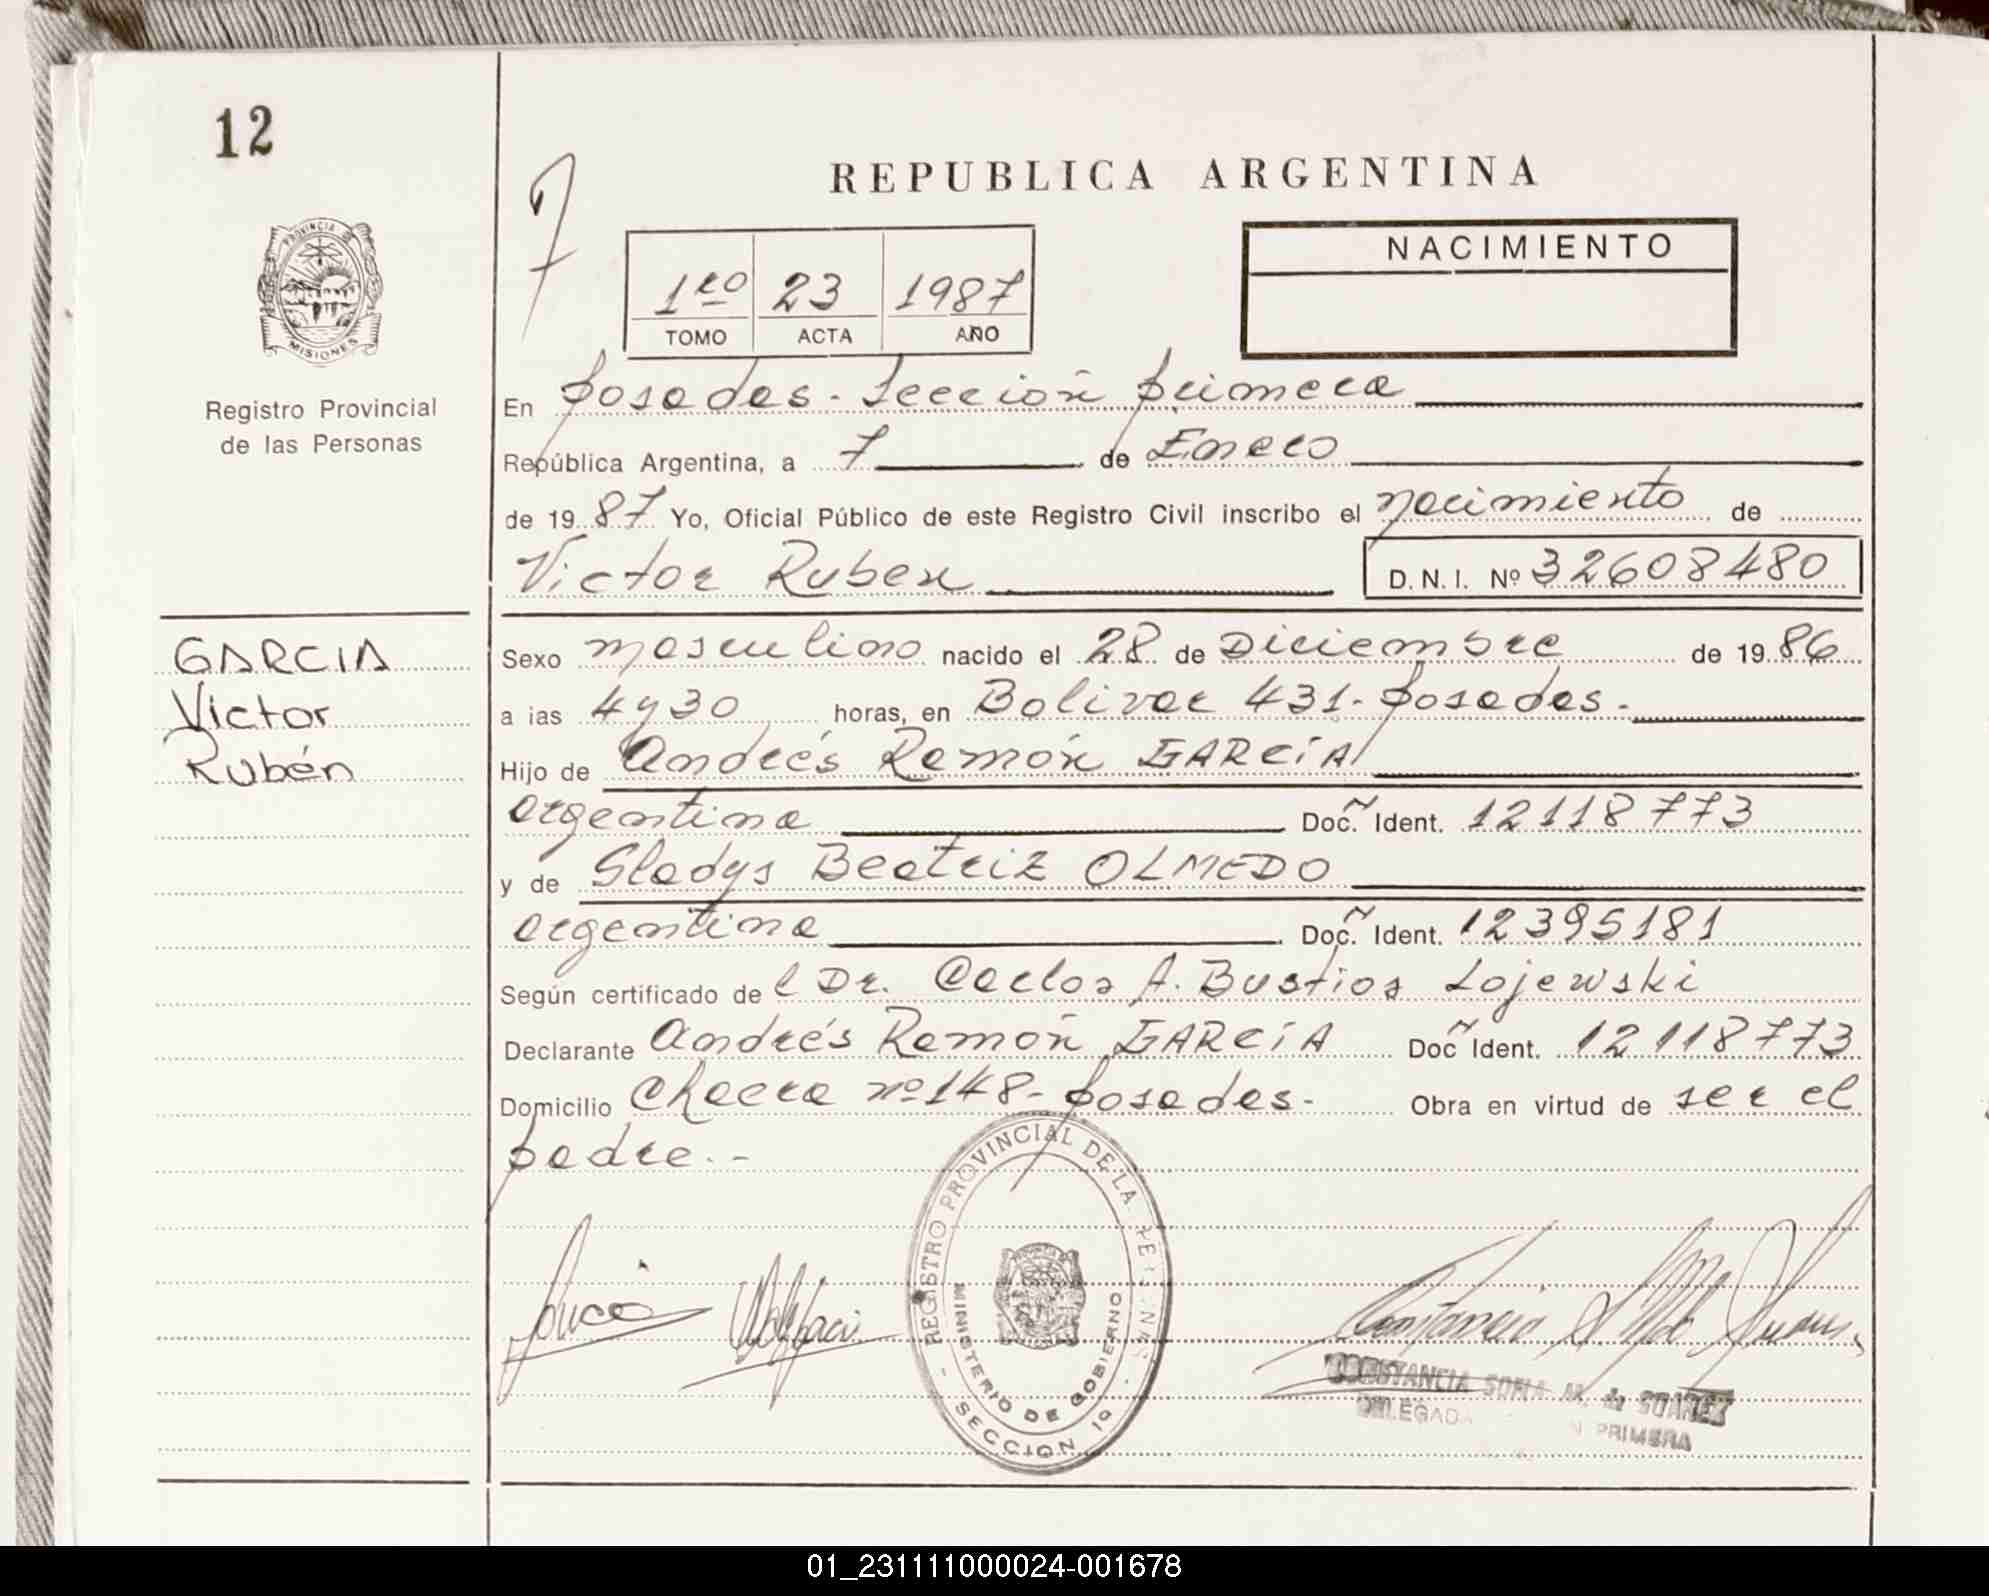 12
REPUBLICA ARGENTINA
PROVINCIA DE
MISIONES
Registro Provincial
de las Personas
1ro 23 1987
TOMO ACTA AÑO
NACIMIENTO
En Posadas - Sección primera
República Argentina, a 7 de Enero
de 1987 Yo, Oficial Público de este Registro Civil inscribo el nacimiento de
Victor Ruben D.N.I. Nº 32608480
GARCIA
Victor
Rubén
Sexo masculino nacido el 28 de Diciembre de 1986
a las 4 y 30 horas, en Bolivar 431 - Posadas.
Hijo de Andrés Ramón GARCÍA
argentina Doc. Ident. 12118773
y de Gladys Beatriz OLMEDO
argentina Doc. Ident. 12395181
Según certificado del Dr. Carlos A. Bustios Lojewski
Declarante Andrés Ramón GARCÍA Doc Ident. 12118773
Domicilio Chacra nº 148 - Posadas - Obra en virtud de ser el
padre. -
REGISTRO PROVINCIAL DE LA PERSONAS
MINISTERIO DE GOBIERNO
- SECCION 1º -
CONSTANCIA SOFIA M. de SUAREZ
DELEGADA PRIMERA
01_231111000024-001678